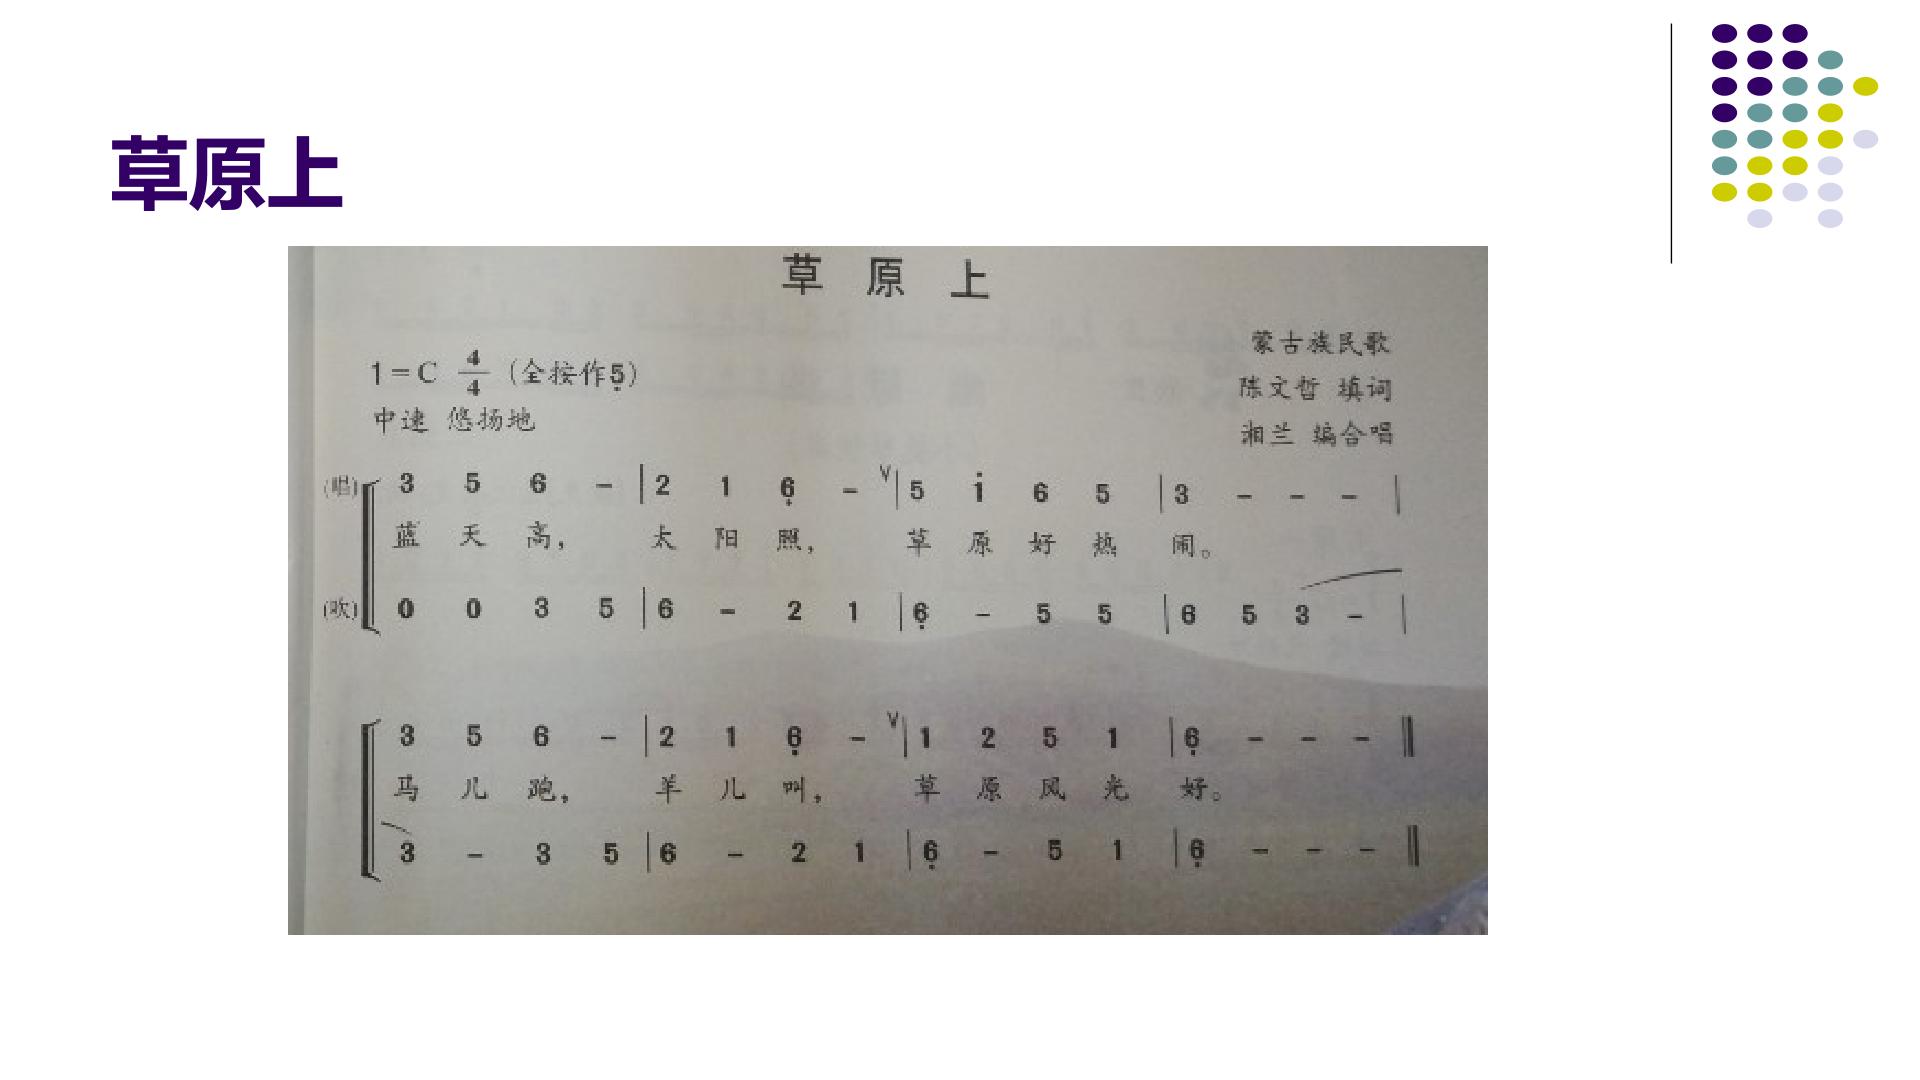 草原上
草 原 上
蒙古族民歌
1=C 4/4 (全按作5̣)
陈文哲 填词
中速 悠扬地
湘兰 编合唱
(唱) 3 5 6 - | 2 1 6̣ - V | 5 1̇ 6 5 | 3 - - - |
蓝 天 高, 太 阳 照, 草 原 好 热 闹。
(吹) 0 0 3 5 | 6 - 2 1 | 6̣ - 5 5 | 6 5 3 - |
3 5 6 - | 2 1 6̣ - V | 1 2 5 1 | 6̣ - - - ‖
马 儿 跑, 羊 儿 叫, 草 原 风 光 好。
3 - 3 5 | 6 - 2 1 | 6̣ - 5 1 | 6̣ - - - ‖